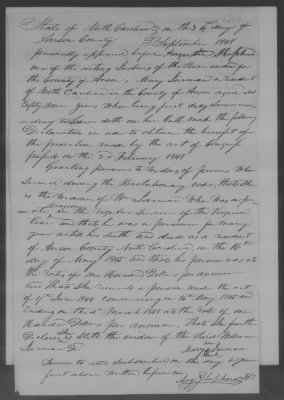 State of North Carolina } on this 4th day of
Anson County } September 1848
personally appeared before Augustin Shepherd
one of the acting Justices of the peace in and for
the County of Anson, Mary Surman a resident
of North Carolina in the County of Anson aged
Eighty four years Who being first duly Sworn
according to Law doth on her Oath make the following
Declaration in order to obtain the benefit of
the provision made by the act of Congress
passed on the 2nd February 1848
Granting pensions to Widows of persons Who
Served during the Revolutionary War, that She
is the Widow of Wm Surman Who Was a
private in the regular Service of the Virginia
line and that he was a pensioner for many
years until his death and died as a resident
of Anson County North Carolina on the 16th
day of May 1845 and that his pension was at
the rates of one Hundred Dollars per annum
and that She received a pension under the act
of 17th June 1844 Commencing on 16th May 1845 and
Ending on the 4th March 1848 at the rate of one
Hundred Dollars per Annum, That She further
Declares She is Still the widow of the Said William
Surman Sr
Mary her mark Surman
Sworn to and subscribed on the day &
first above Written before me,
Augn Shepherd JP